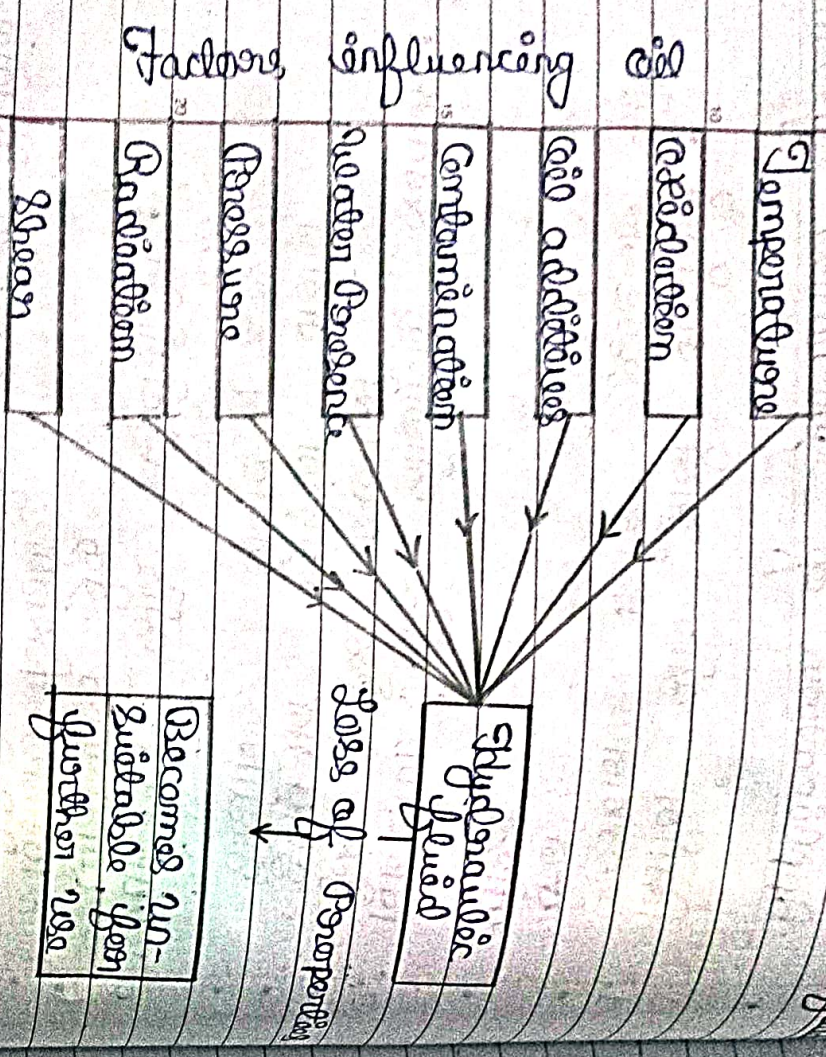 Factors influencing oil
Temperature
Oxidation
Oil additives
Contamination
Water Present
Pressure
Radiation
Shear
Hydraulic
fluid
Loss of Properties
Becomes un-
suitable for
further use